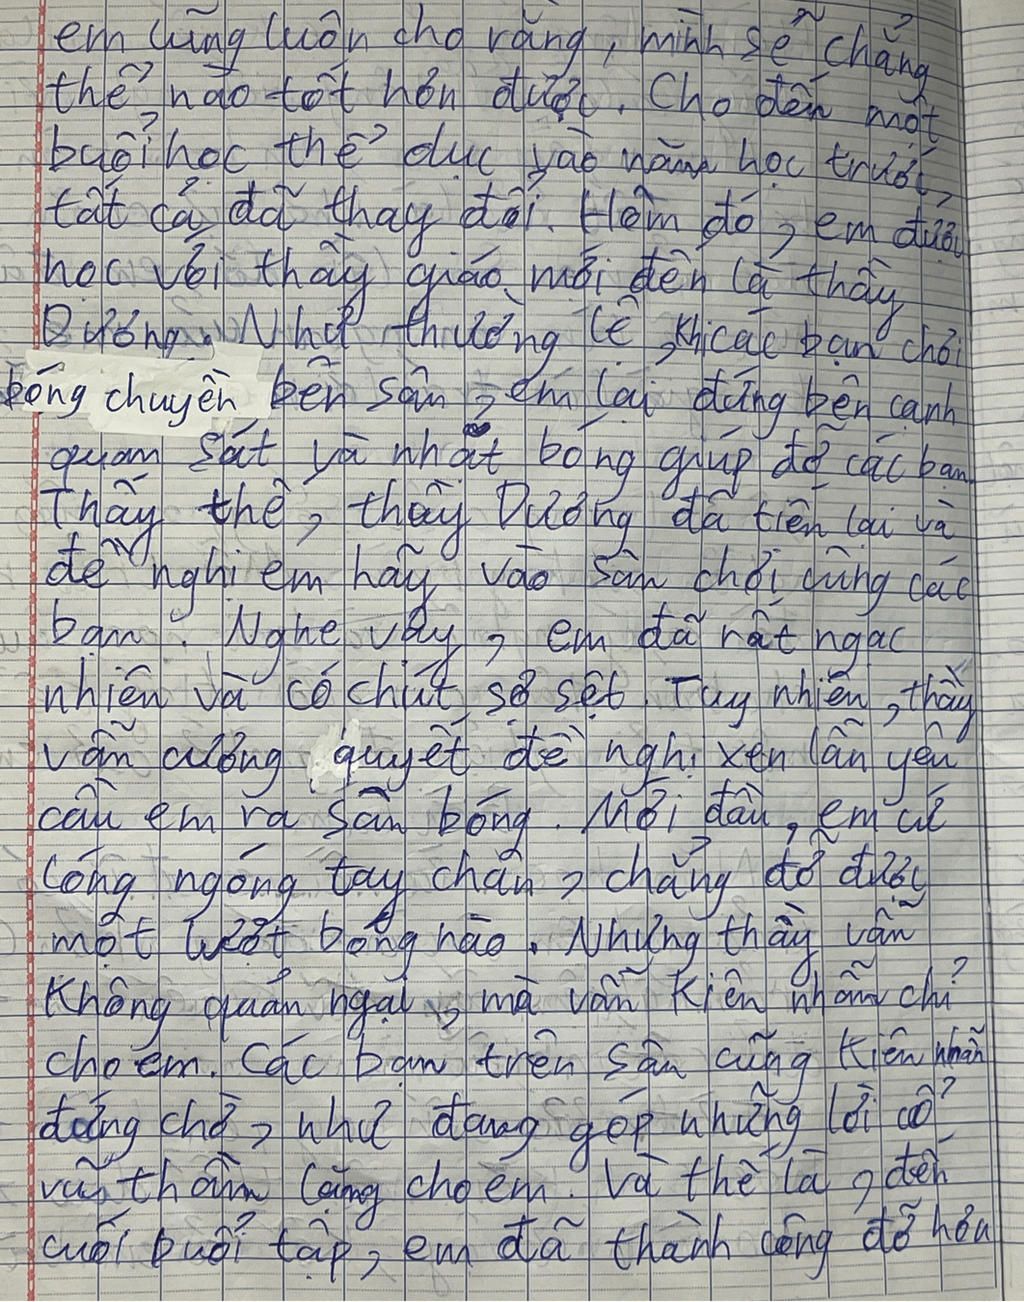 em cũng luôn cho rằng, mình sẽ chẳng
thể nào tốt hơn được. Cho đến một
buổi học thể dục vào năm học trước,
tất cả đã thay đổi. Hôm đó, em được
học với thầy giáo mới đến là thầy
Dương. Như thường lệ, khi các bạn chơi
bóng chuyền bên sân, em lại đứng bên cạnh
quan sát và nhặt bóng giúp đỡ các bạn
Thấy thế, thầy Dương đã tiến lại và
đề nghị em hãy vào sân chơi cùng các
bạn. Nghe vậy, em đã rất ngạc
nhiên và có chút sợ sệt. Tuy nhiên, thầy
vẫn cương quyết đề nghị xen lẫn yêu
cầu em ra sân bóng. Mới đầu, em cứ
lóng ngóng tay chân, chẳng đỡ được
một lượt bóng nào. Nhưng thầy vẫn
không quản ngại, mà vẫn kiên nhẫn chỉ
cho em. Các bạn trên sân cũng kiên nhẫn
đứng chờ, như đang góp những lời cổ
vũ thầm lặng cho em. Và thế là, đến
cuối buổi tập, em đã thành công đỡ hơn